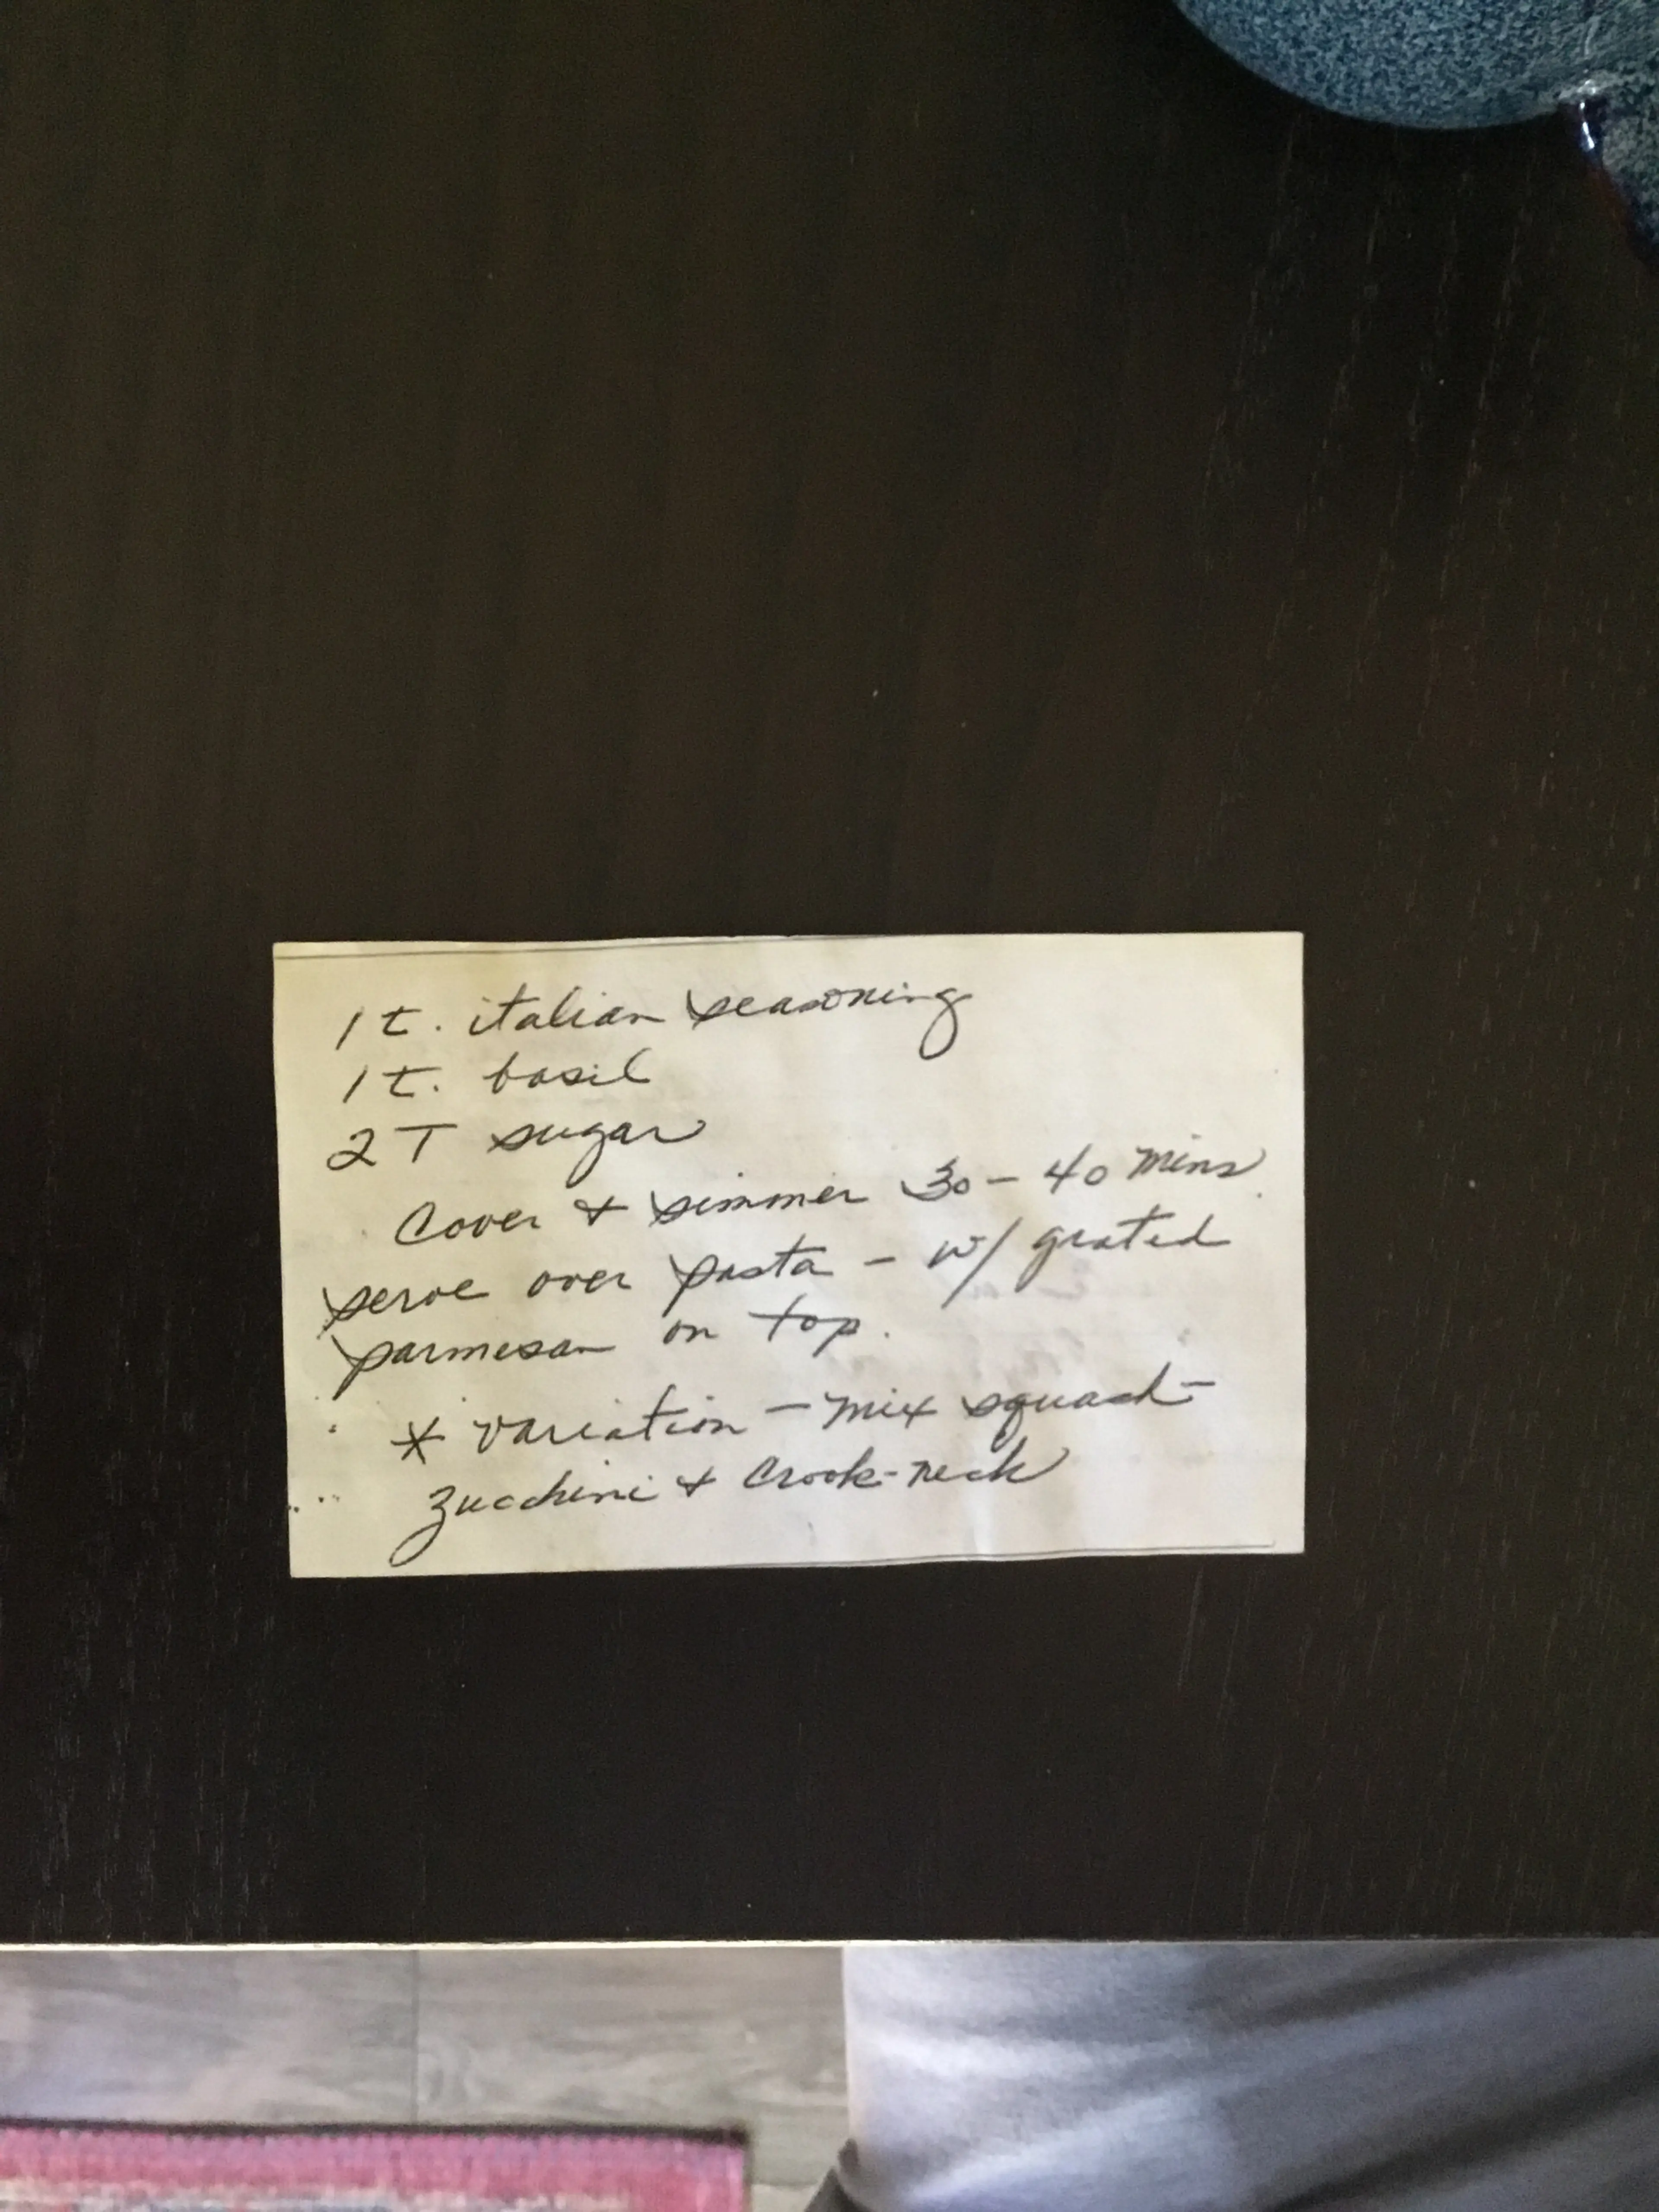 1 t. italian seasoning
1 t. basil
2 T sugar
Cover + simmer 30 - 40 mins.
serve over pasta - w/ grated
parmesan on top.
* variation - mix squash -
zucchini + crook-neck